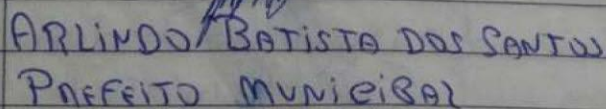 ARLINDO BATISTA DOS SANTOS
PREFEITO MUNICIPAL